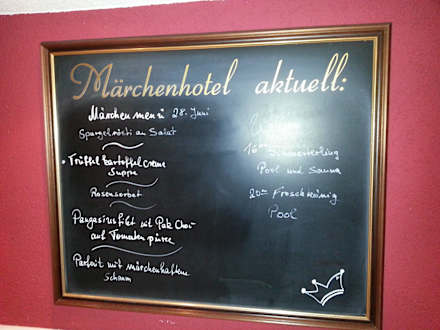 Märchenhotel aktuell:
Märchenmenü 28. Juni
Spargelrösti an Salat
Trüffelkartoffelcreme
Suppe
Rosensorbet
Pangasiusfilet mit Pak Choi
auf Tomatenpüree
Parfait mit märchenhaftem
Schaum
16°° Schmetterling
Pool und Sauna
20°° Froschkönig
Pool